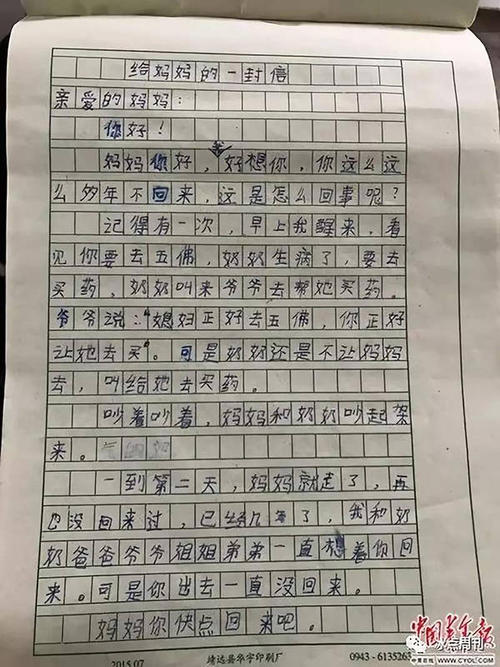 给妈妈的一封信
亲爱的妈妈:
你好!
妈妈你好,我好想你,你这么这
么多年不回来,这是怎么回事呢?
记得有一次,早上我醒来,看
见你要去五佛,奶奶生病了,要去
买药,奶奶叫来爷爷去帮她买药。
爷爷说:“媳妇正好去五佛,你正好
让她去买”。可是奶奶还是不让妈妈
去,叫给她去买药。
吵着吵着,妈妈和奶奶吵起架
来。
一到第二天,妈妈就走了,再
也没回来过,已经几年了,我和奶
奶爸爸爷爷姐姐弟弟一直想着你回
来。可是你出去一直没回来。
妈妈你快点回来吧。
2015.07 靖远县华宇印刷厂 0943-6135268
中国青年报